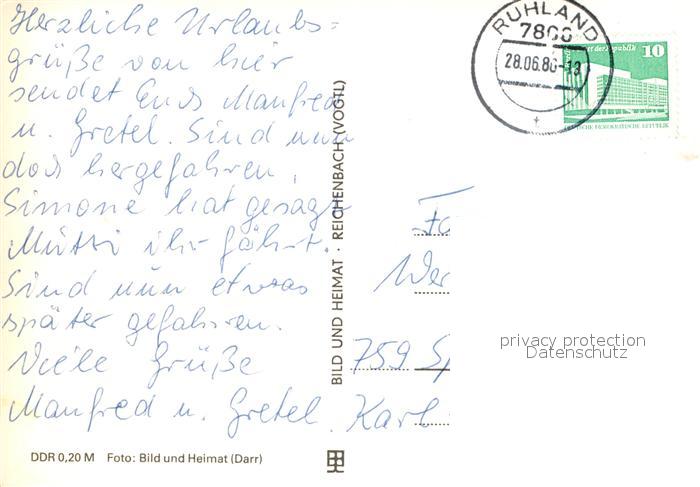 Herzliche Urlaubs=
grüße von hier
sendet Euch Manfred
u. Gretel. Sind nun
doch hergefahren,
Simone hat gesagt
Mutti ihr fährt.
Sind nun etwas
später gefahren.
Viele Grüße
Manfred u. Gretel.
DDR 0,20 M Foto: Bild und Heimat (Darr)
BILD UND HEIMAT · REICHENBACH (VOGTL)
RUHLAND
28.06.86-13
10
DEUTSCHE DEMOKRATISCHE REPUBLIK
Wer
759 Sp
Karl
privacy protection
Datenschutz